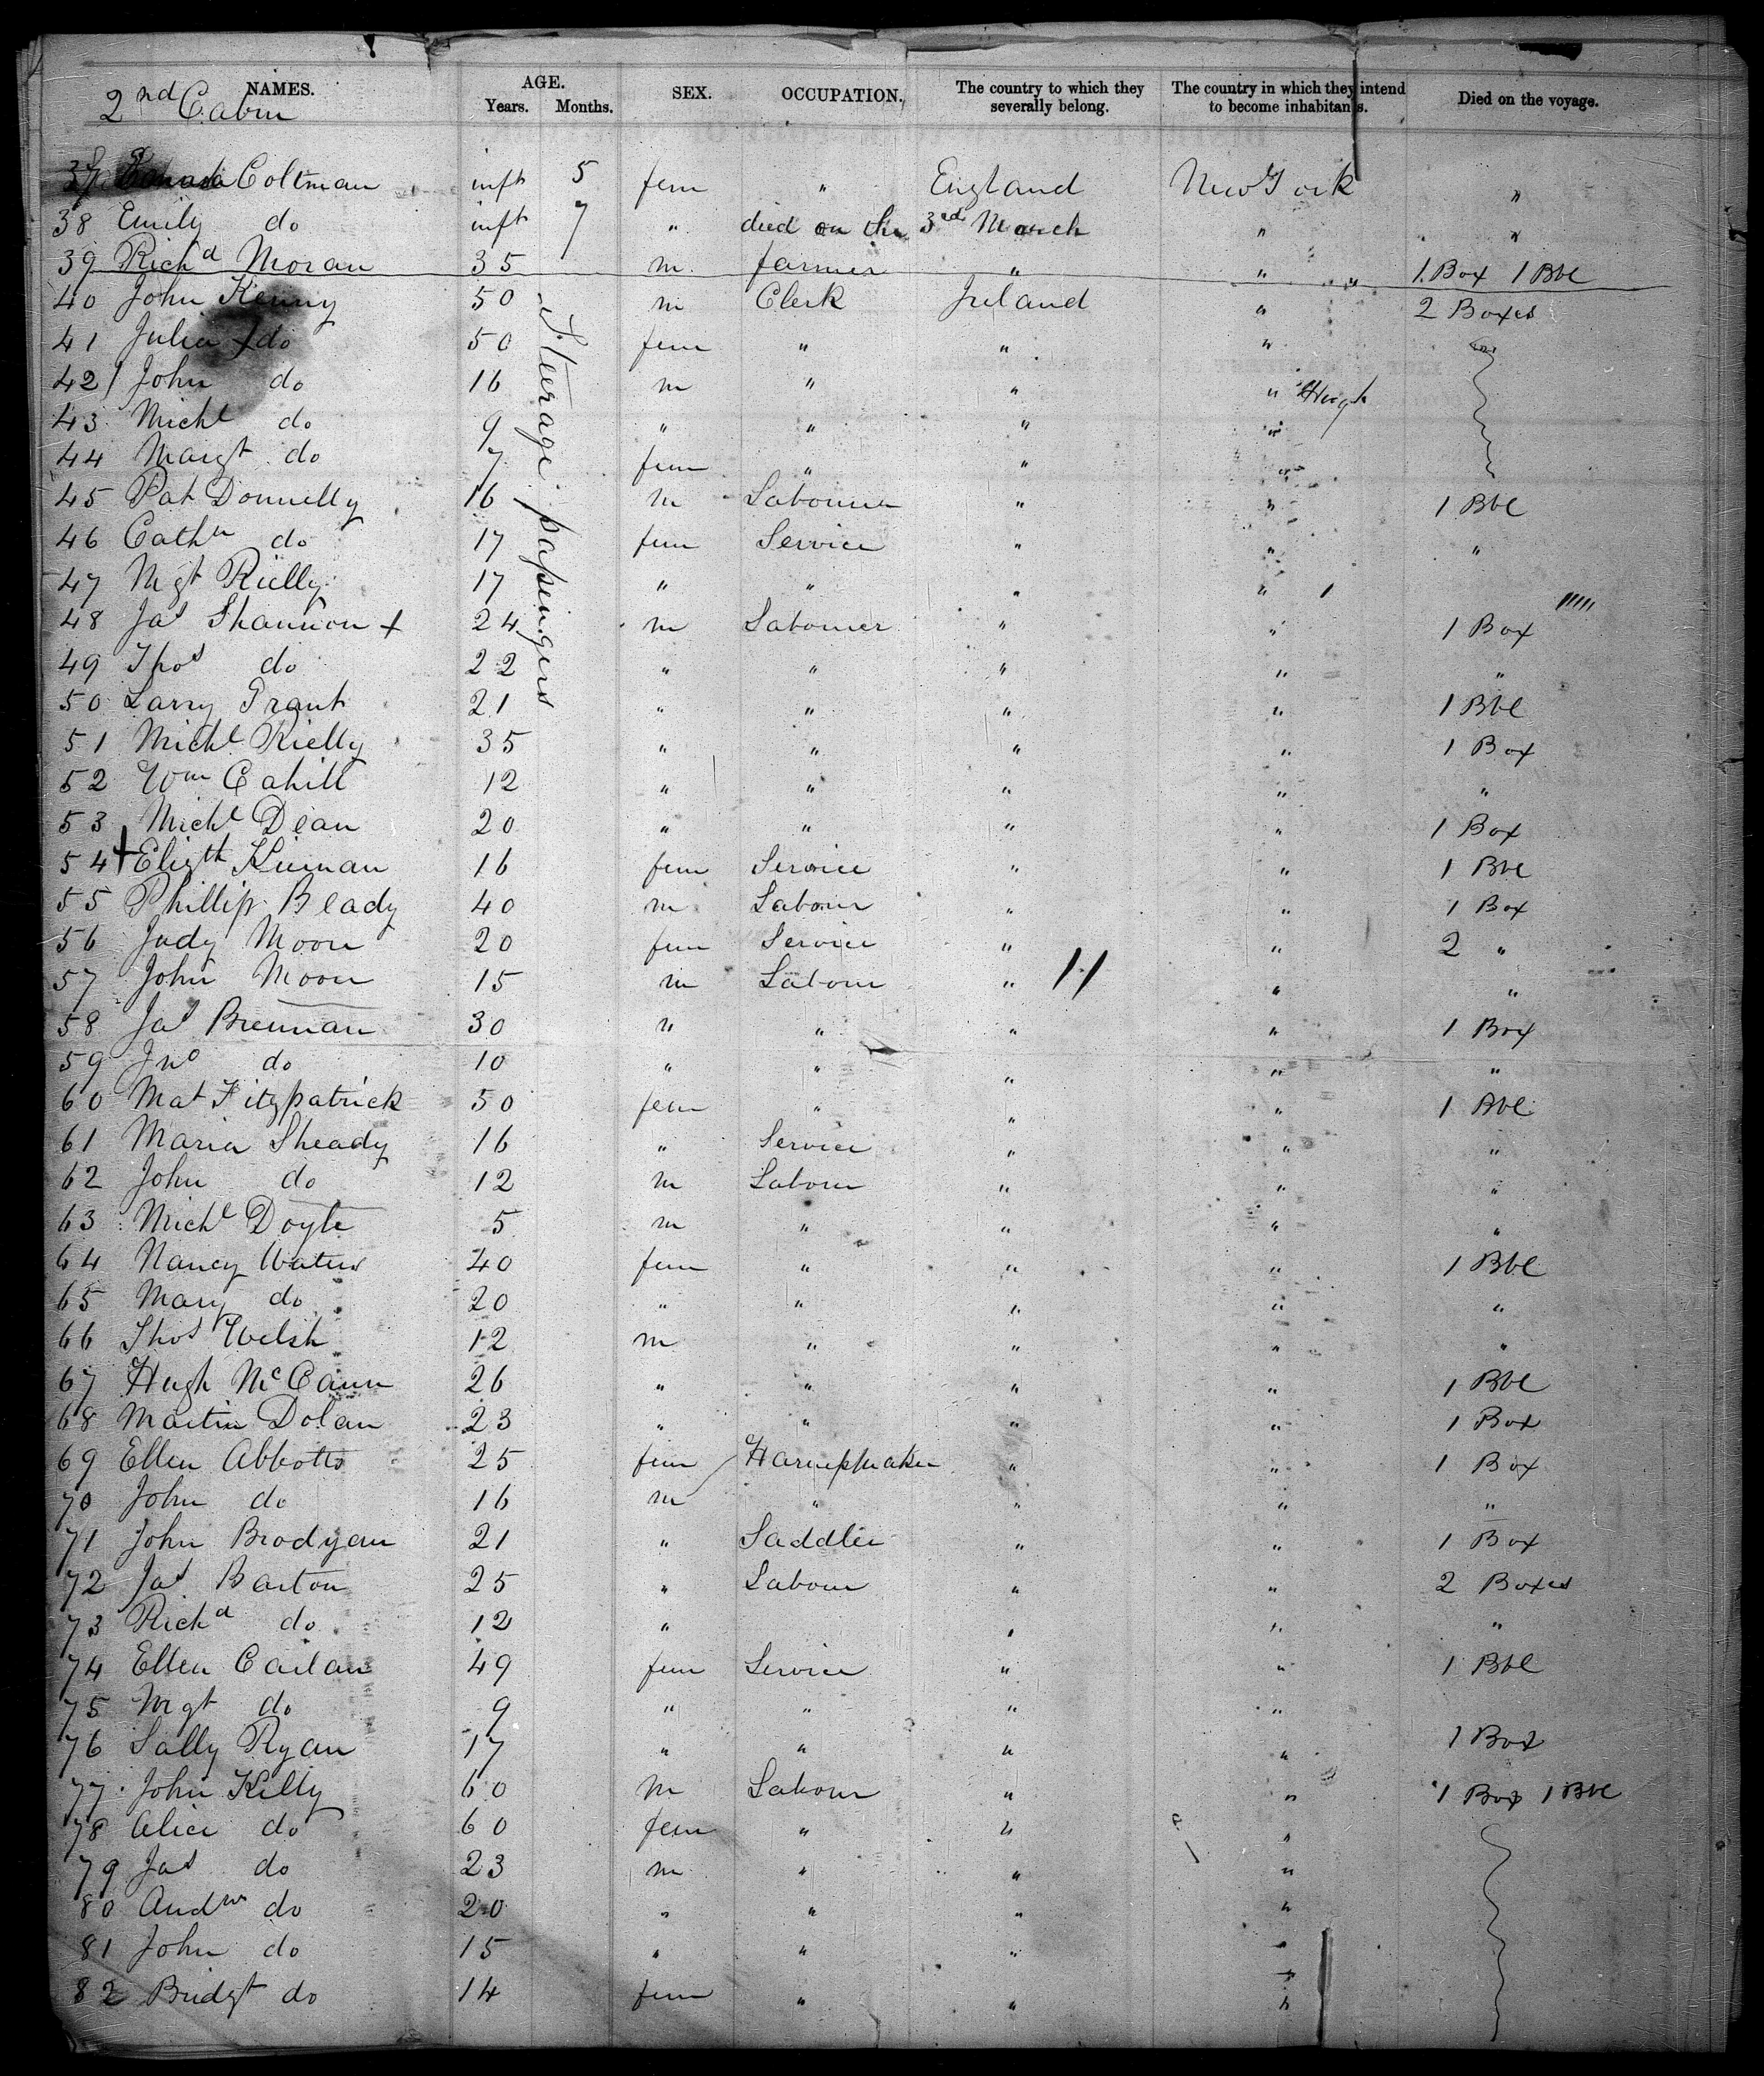 NAMES. AGE. SEX. OCCUPATION. The country to which they severally belong. The country in which they intend to become inhabitants. Died on the voyage.
Years. Months.
2nd Cabin
37 Coltman inft 5 fem " England New York "
38 Emily do inft 7 " died on the 3rd March " "
39 Richd Moran 35 m farmer " " " 1 Box 1 Bbl
Steerage passengers
40 John Kenny 50 m Clerk Ireland " 2 Boxes
41 Julia do 50 fem " " "
42 John do 16 m " " " Hugh
43 Michl do 9 " " " "
44 Margt do 7 fem " " "
45 Pat Donnelly 16 m Labourer " " 1 Bbl
46 Cathn do 17 fem Service " " "
47 Mgt Rielly 17 " " " "
48 Jas Shannon + 24 m Labourer " " 1 Box
49 Thos do 22 " " " " "
50 Larry Grant 21 " " " " 1 Bbl
51 Michl Rielly 35 " " " " 1 Box
52 Wm Cahill 12 " " " " "
53 Michl Dean 20 " " " " 1 Box
54 + Elizth Kiernan 16 fem Service " " 1 Bbl
55 Phillip Beady 40 m Labour " " 1 Box
56 Judy Moore 20 fem Service " " 2 "
57 John Moore 15 m Labour " 11 " "
58 Jas Brennan 30 " " " " 1 Box
59 Jno do 10 " " " " "
60 Mat Fitzpatrick 50 fem " " " 1 Bbl
61 Maria Sheady 16 " Service " " "
62 John do 12 m Labour " " "
63 Michl Doyle 5 m " " " "
64 Nancy Waters 40 fem " " " 1 Bbl
65 Mary do 20 " " " " "
66 Thos Welsh 12 m " " " "
67 Hugh McCann 26 " " " " 1 Bbl
68 Martin Dolan 23 " " " " 1 Box
69 Ellen Abbotts 25 fem Harnessmaker " " 1 Box
70 John do 16 m " " " "
71 John Brodyan 21 " Saddler " " 1 Box
72 Jas Barton 25 " Labour " " 2 Boxes
73 Richd do 12 " " " "
74 Ellen Carlan 49 fem Service " " 1 Bbl
75 Mgt do 9 " " " "
76 Sally Ryan 17 " " " " 1 Box
77 John Kelly 60 m Labour " " 1 Box 1 Bbl
78 Alice do 60 fem " " "
79 Jas do 23 m " " "
80 Andw do 20 " " " "
81 John do 15 " " " "
82 Bridgt do 14 fem " " "